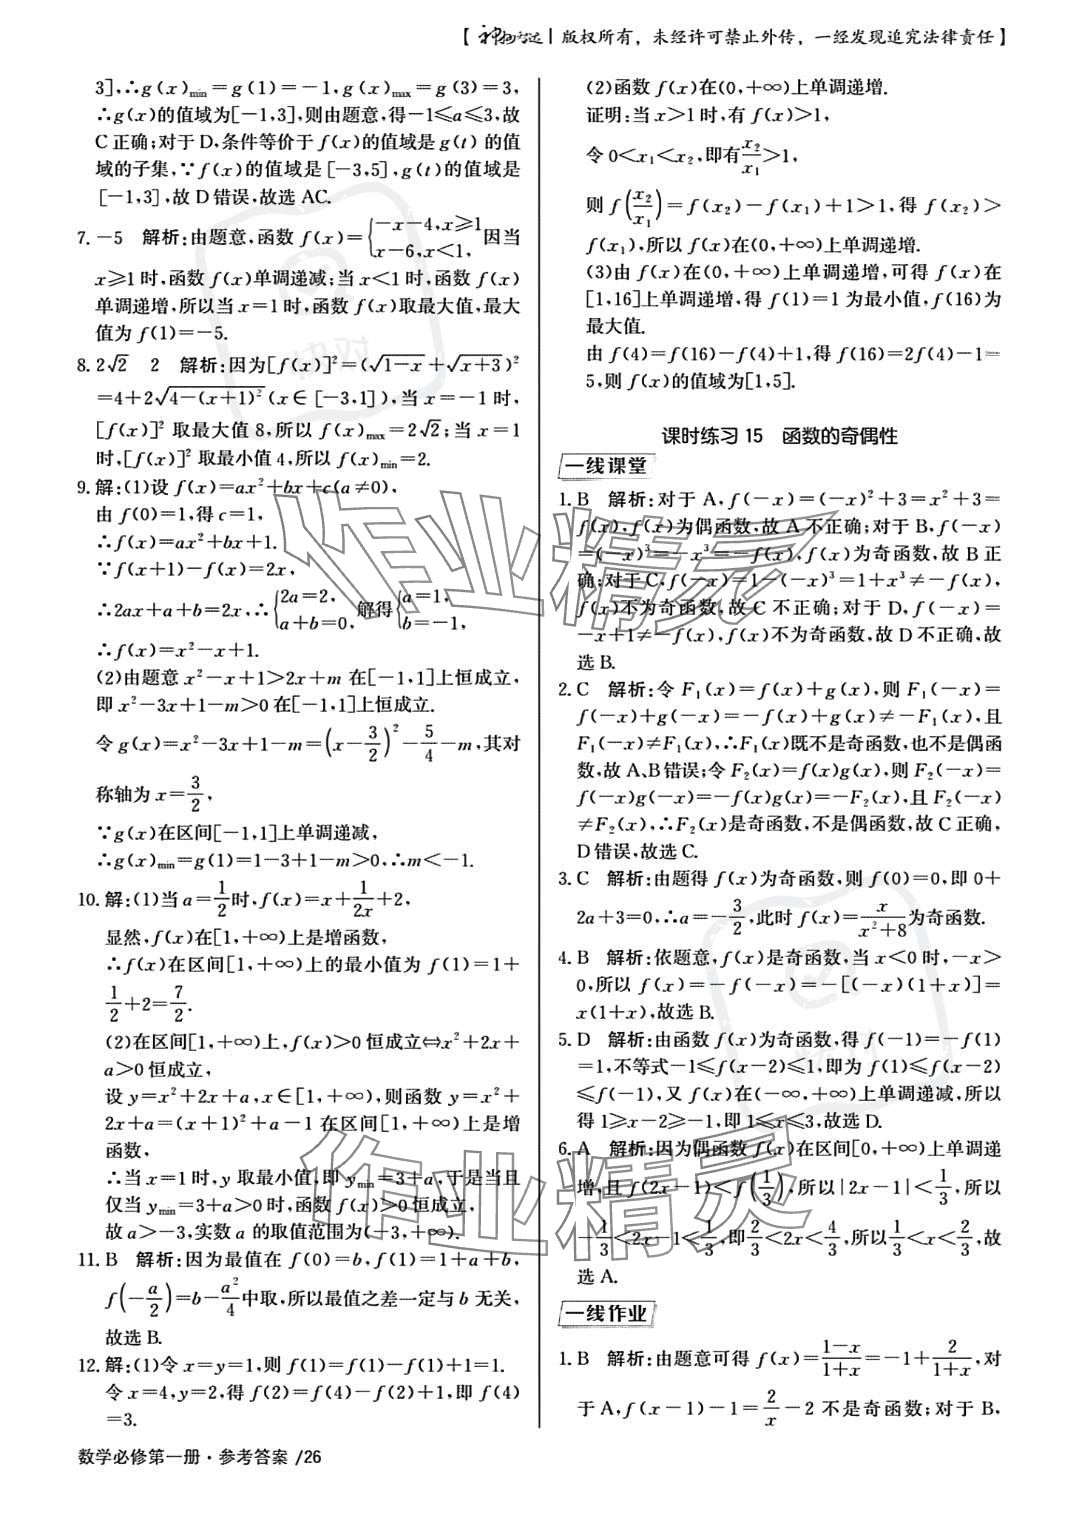 【神州智达|版权所有，未经许可禁止外传，一经发现追究法律责任】
3]，∴g(x)min＝g(1)＝－1，g(x)max＝g(3)＝3，
∴g(x)的值域为[－1,3]，则由题意，得－1≤a≤3，故
C正确；对于D，条件等价于f(x)的值域是g(t)的值
域的子集，∵f(x)的值域是[－3,5]，g(t)的值域是
[－1,3]，故D错误，故选AC.
7. －5 解析：由题意，函数f(x)＝{－x－4,x≥1 x－6,x<1, 因当
x≥1时，函数f(x)单调递减；当x<1时，函数f(x)
单调递增，所以当x＝1时，函数f(x)取最大值，最大
值为f(1)＝－5.
8. 2√2 2 解析：因为[f(x)]²＝(√(1－x)＋√(x＋3))²
＝4＋2√(4－(x＋1)²)(x∈[－3,1])，当x＝－1时，
[f(x)]²取最大值8，所以f(x)max＝2√2；当x＝1
时，[f(x)]²取最小值4，所以f(x)min＝2.
9. 解：(1)设f(x)＝ax²＋bx＋c(a≠0)，
由f(0)＝1，得c＝1，
∴f(x)＝ax²＋bx＋1.
∵f(x＋1)－f(x)＝2x，
∴2ax＋a＋b＝2x，∴{2a＝2, a＋b＝0, 解得{a＝1, b＝－1,
∴f(x)＝x²－x＋1.
(2)由题意x²－x＋1>2x＋m在[－1,1]上恒成立，
即x²－3x＋1－m>0在[－1,1]上恒成立.
令g(x)＝x²－3x＋1－m＝(x－3/2)²－5/4－m，其对
称轴为x＝3/2，
∵g(x)在区间[－1,1]上单调递减，
∴g(x)min＝g(1)＝1－3＋1－m>0，∴m<－1.
10. 解：(1)当a＝1/2时，f(x)＝x＋1/2x＋2，
显然，f(x)在[1,＋∞)上是增函数，
∴f(x)在区间[1,＋∞)上的最小值为f(1)＝1＋
1/2＋2＝7/2.
(2)在区间[1,＋∞)上，f(x)>0恒成立⇔x²＋2x＋
a>0恒成立，
设y＝x²＋2x＋a,x∈[1,＋∞)，则函数y＝x²＋
2x＋a＝(x＋1)²＋a－1在区间[1,＋∞)上是增
函数，
∴当x＝1时，y取最小值，即ymin＝3＋a，于是当且
仅当ymin＝3＋a>0时，函数f(x)>0恒成立，
故a>－3，实数a的取值范围为(－3,＋∞).
11. B 解析：因为最值在f(0)＝b，f(1)＝1＋a＋b，
f(－a/2)＝b－a²/4中取，所以最值之差一定与b无关，
故选B.
12. 解：(1)令x＝y＝1，则f(1)＝f(1)－f(1)＋1＝1.
令x＝4，y＝2，得f(2)＝f(4)－f(2)＋1，即f(4)
＝3.
(2)函数f(x)在(0,＋∞)上单调递增.
证明：当x>1时，有f(x)>1，
令0<x₁<x₂，即有x₂/x₁>1，
则f(x₂/x₁)＝f(x₂)－f(x₁)＋1>1，得f(x₂)>
f(x₁)，所以f(x)在(0,＋∞)上单调递增.
(3)由f(x)在(0,＋∞)上单调递增，可得f(x)在
[1,16]上单调递增，得f(1)＝1为最小值，f(16)为
最大值.
由f(4)＝f(16)－f(4)＋1，得f(16)＝2f(4)－1＝
5，则f(x)的值域为[1,5].
课时练习15 函数的奇偶性
一线课堂
1. B 解析：对于A，f(－x)＝(－x)²＋3＝x²＋3＝
f(x)，f(x)为偶函数，故A不正确；对于B，f(－x)
＝(－x)³＝－x³＝－f(x)，f(x)为奇函数，故B正
确；对于C，f(－x)＝1－(－x)³＝1＋x³≠－f(x)，
f(x)不为奇函数，故C不正确；对于D，f(－x)＝
－x＋1≠－f(x)，f(x)不为奇函数，故D不正确，故
选B.
2. C 解析：令F₁(x)＝f(x)＋g(x)，则F₁(－x)＝
f(－x)＋g(－x)＝－f(x)＋g(x)≠－F₁(x)，且
F₁(－x)≠F₁(x)，∴F₁(x)既不是奇函数，也不是偶函
数，故A、B错误；令F₂(x)＝f(x)g(x)，则F₂(－x)＝
f(－x)g(－x)＝－f(x)g(x)＝－F₂(x)，且F₂(－x)
≠F₂(x)，∴F₂(x)是奇函数，不是偶函数，故C正确，
D错误，故选C.
3. C 解析：由题得f(x)为奇函数，则f(0)＝0，即0＋
2a＋3＝0，∴a＝－3/2，此时f(x)＝x/(x²＋8)为奇函数.
4. B 解析：依题意，f(x)是奇函数，当x<0时，－x>
0，所以f(x)＝－f(－x)＝－[(－x)(1＋x)]＝
x(1＋x)，故选B.
5. D 解析：由函数f(x)为奇函数，得f(－1)＝－f(1)
＝1，不等式－1≤f(x－2)≤1，即为f(1)≤f(x－2)
≤f(－1)，又f(x)在(－∞,＋∞)上单调递减，所以
得1≥x－2≥－1，即1≤x≤3，故选D.
6. A 解析：因为偶函数f(x)在区间[0,＋∞)上单调递
增，且f(2x－1)<f(1/3)，所以|2x－1|<1/3，所以
－1/3<2x－1<1/3，即2/3<2x<4/3，所以1/3<x<2/3，故
选A.
一线作业
1. B 解析：由题意可得f(x)＝(1－x)/(1＋x)＝－1＋2/(1＋x)，对
于A，f(x－1)－1＝2/x－2不是奇函数；对于B，
数学必修第一册·参考答案 /26
作业精灵
作业精灵
快对
快对